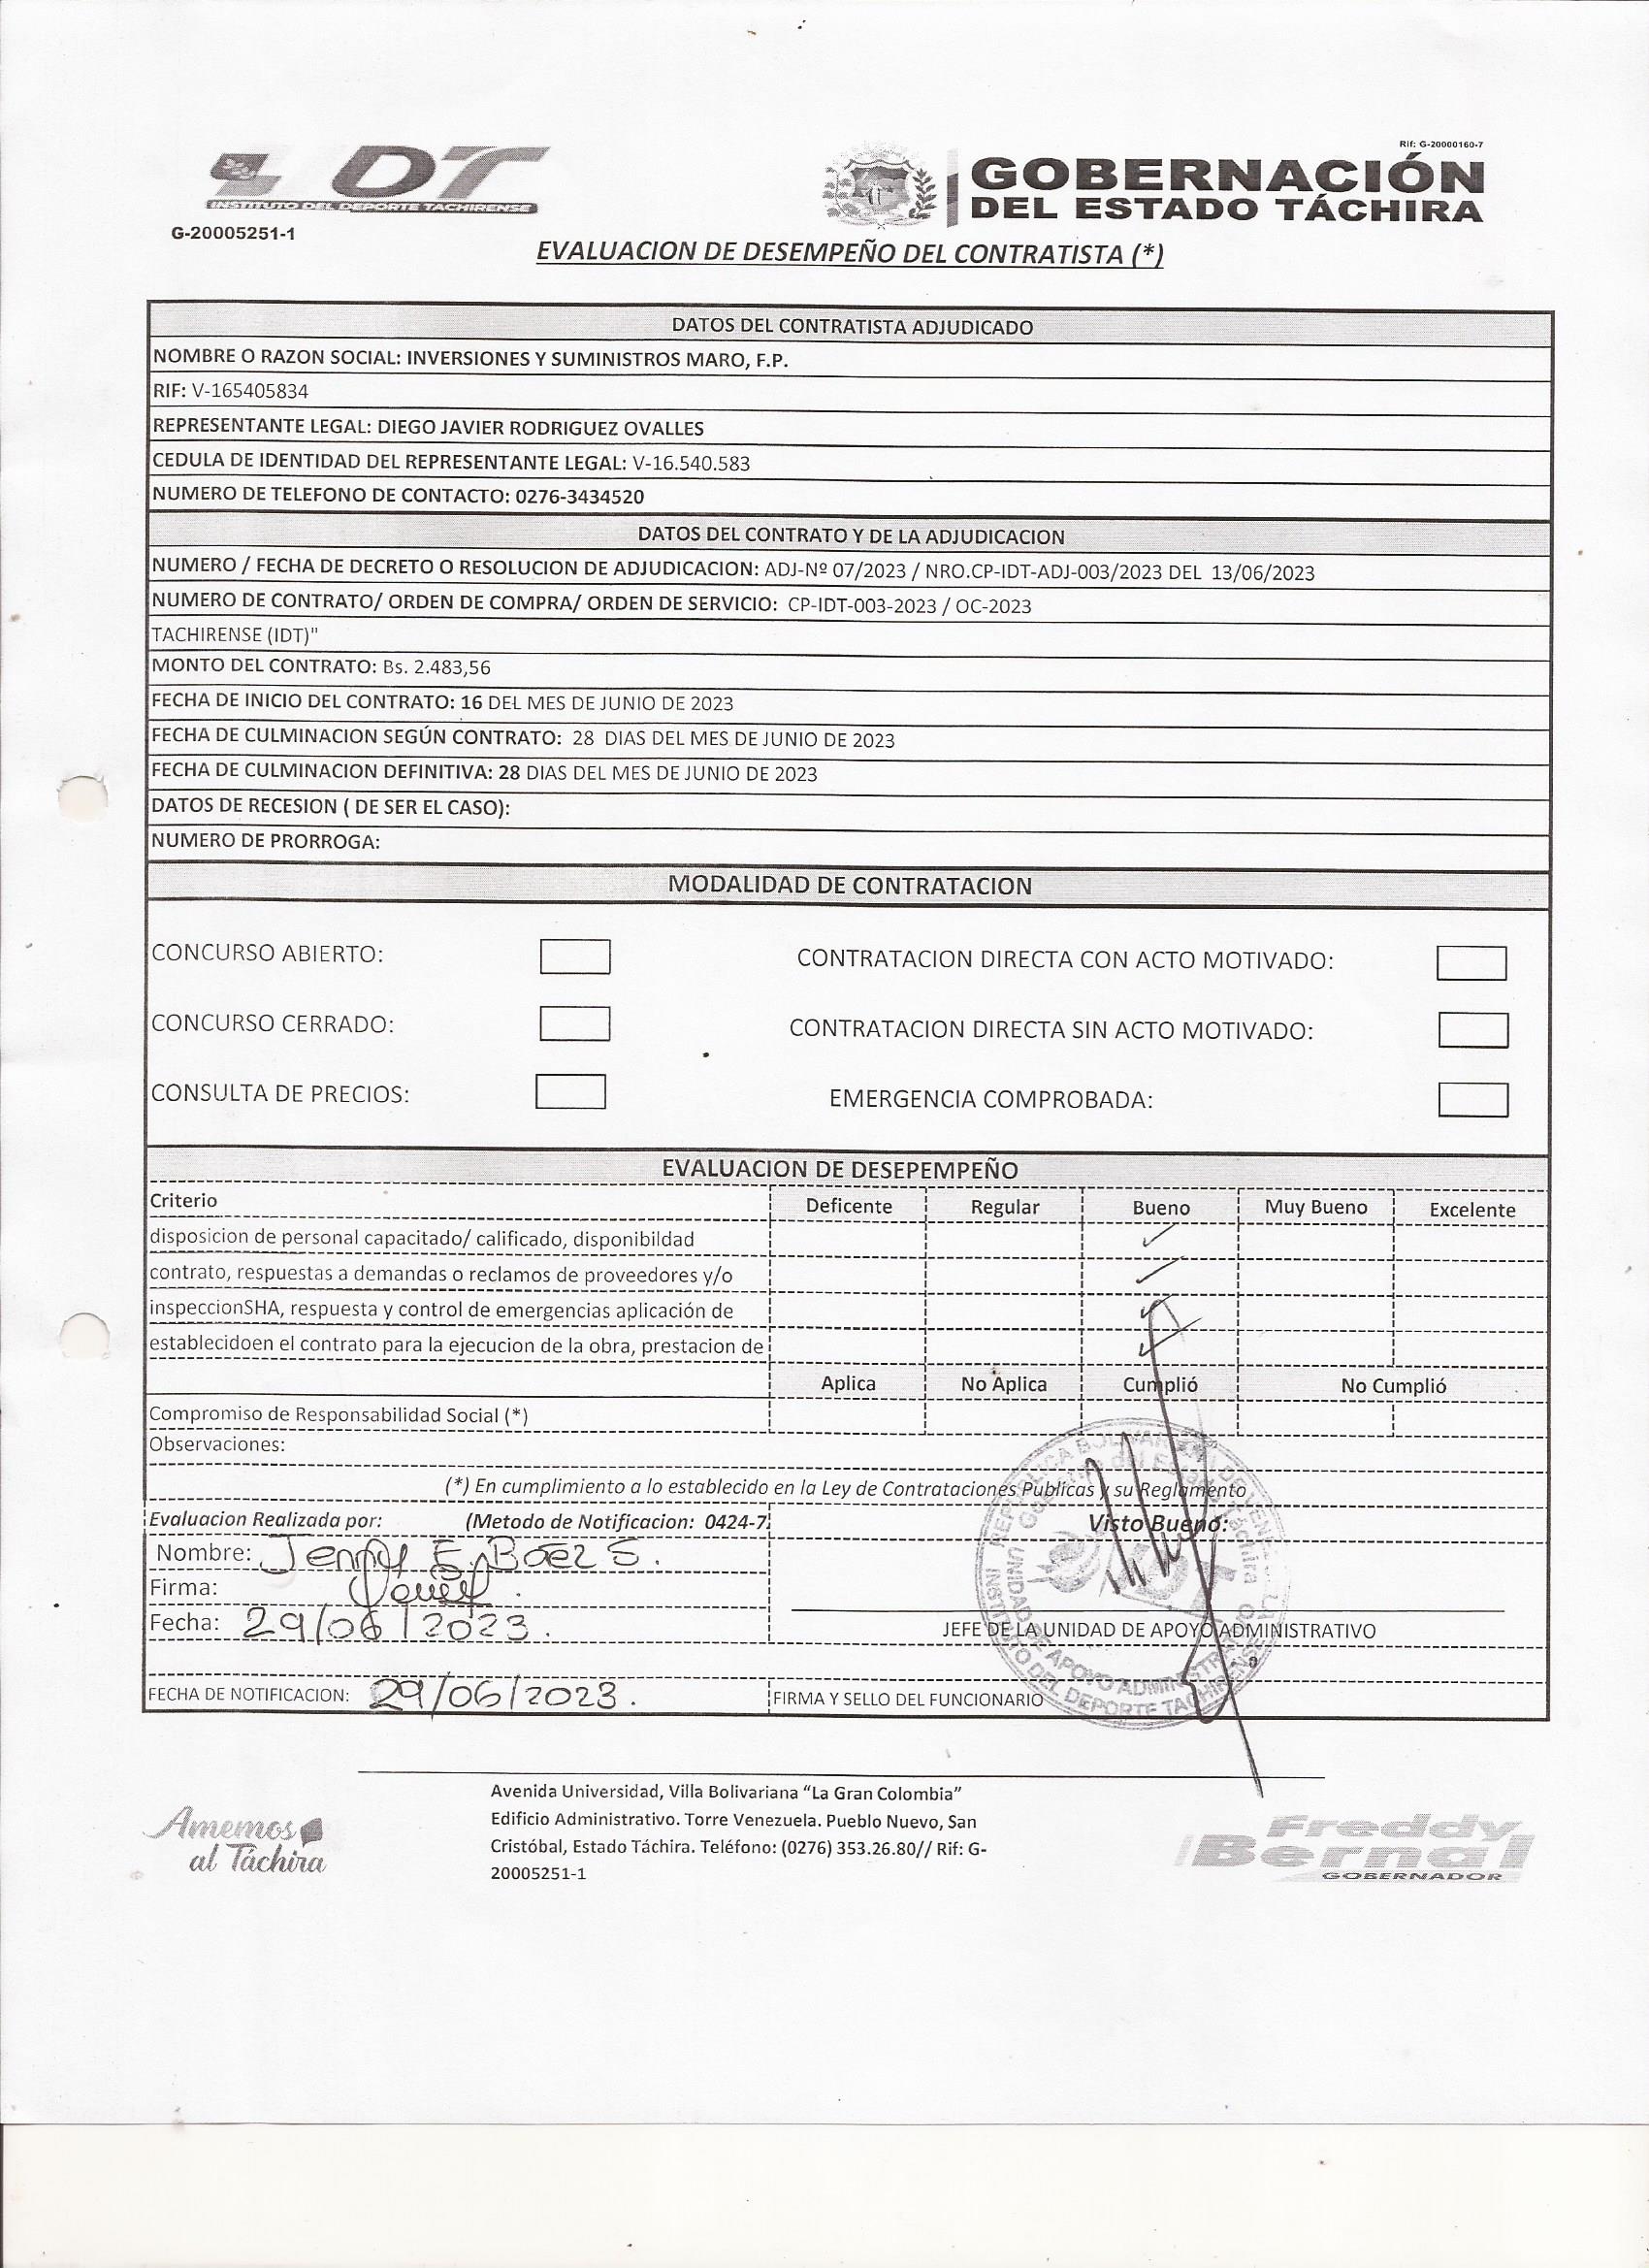 Rif: G-20000160-7
IDT
INSTITUTO DEL DEPORTE TACHIRENSE
GOBERNACIÓN
DEL ESTADO TÁCHIRA
G-20005251-1
EVALUACION DE DESEMPEÑO DEL CONTRATISTA (*)
DATOS DEL CONTRATISTA ADJUDICADO
NOMBRE O RAZON SOCIAL: INVERSIONES Y SUMINISTROS MARO, F.P.
RIF: V-165405834
REPRESENTANTE LEGAL: DIEGO JAVIER RODRIGUEZ OVALLES
CEDULA DE IDENTIDAD DEL REPRESENTANTE LEGAL: V-16.540.583
NUMERO DE TELEFONO DE CONTACTO: 0276-3434520
DATOS DEL CONTRATO Y DE LA ADJUDICACION
NUMERO / FECHA DE DECRETO O RESOLUCION DE ADJUDICACION: ADJ-Nº 07/2023 / NRO.CP-IDT-ADJ-003/2023 DEL 13/06/2023
NUMERO DE CONTRATO/ ORDEN DE COMPRA/ ORDEN DE SERVICIO: CP-IDT-003-2023 / OC-2023
TACHIRENSE (IDT)"
MONTO DEL CONTRATO: Bs. 2.483,56
FECHA DE INICIO DEL CONTRATO: 16 DEL MES DE JUNIO DE 2023
FECHA DE CULMINACION SEGÚN CONTRATO: 28 DIAS DEL MES DE JUNIO DE 2023
FECHA DE CULMINACION DEFINITIVA: 28 DIAS DEL MES DE JUNIO DE 2023
DATOS DE RECESION ( DE SER EL CASO):
NUMERO DE PRORROGA:
MODALIDAD DE CONTRATACION
CONCURSO ABIERTO: CONTRATACION DIRECTA CON ACTO MOTIVADO:
CONCURSO CERRADO: CONTRATACION DIRECTA SIN ACTO MOTIVADO:
CONSULTA DE PRECIOS: EMERGENCIA COMPROBADA:
EVALUACION DE DESEPEMPEÑO
Criterio Deficente Regular Bueno Muy Bueno Excelente
disposicion de personal capacitado/ calificado, disponibildad
contrato, respuestas a demandas o reclamos de proveedores y/o
inspeccionSHA, respuesta y control de emergencias aplicación de
establecidoen el contrato para la ejecucion de la obra, prestacion de
Aplica No Aplica Cumplió No Cumplió
Compromiso de Responsabilidad Social (*)
Observaciones:
(*) En cumplimiento a lo establecido en la Ley de Contrataciones Publicas y su Reglamento
Evaluacion Realizada por: (Metodo de Notificacion: 0424-7 Visto Bueno:
Nombre: Jenny E. Báez S.
Firma:
Fecha: 29/06/2023.
JEFE DE LA UNIDAD DE APOYO ADMINISTRATIVO
FECHA DE NOTIFICACION: 29/06/2023. FIRMA Y SELLO DEL FUNCIONARIO
UNIDAD DE APOYO ADMINISTRATIVO
INSTITUTO DEL DEPORTE TACHIRENSE
Avenida Universidad, Villa Bolivariana “La Gran Colombia”
Edificio Administrativo. Torre Venezuela. Pueblo Nuevo, San
Cristóbal, Estado Táchira. Teléfono: (0276) 353.26.80// Rif: G-
20005251-1
Amemos
al Táchira
Freddy
Bernal
GOBERNADOR